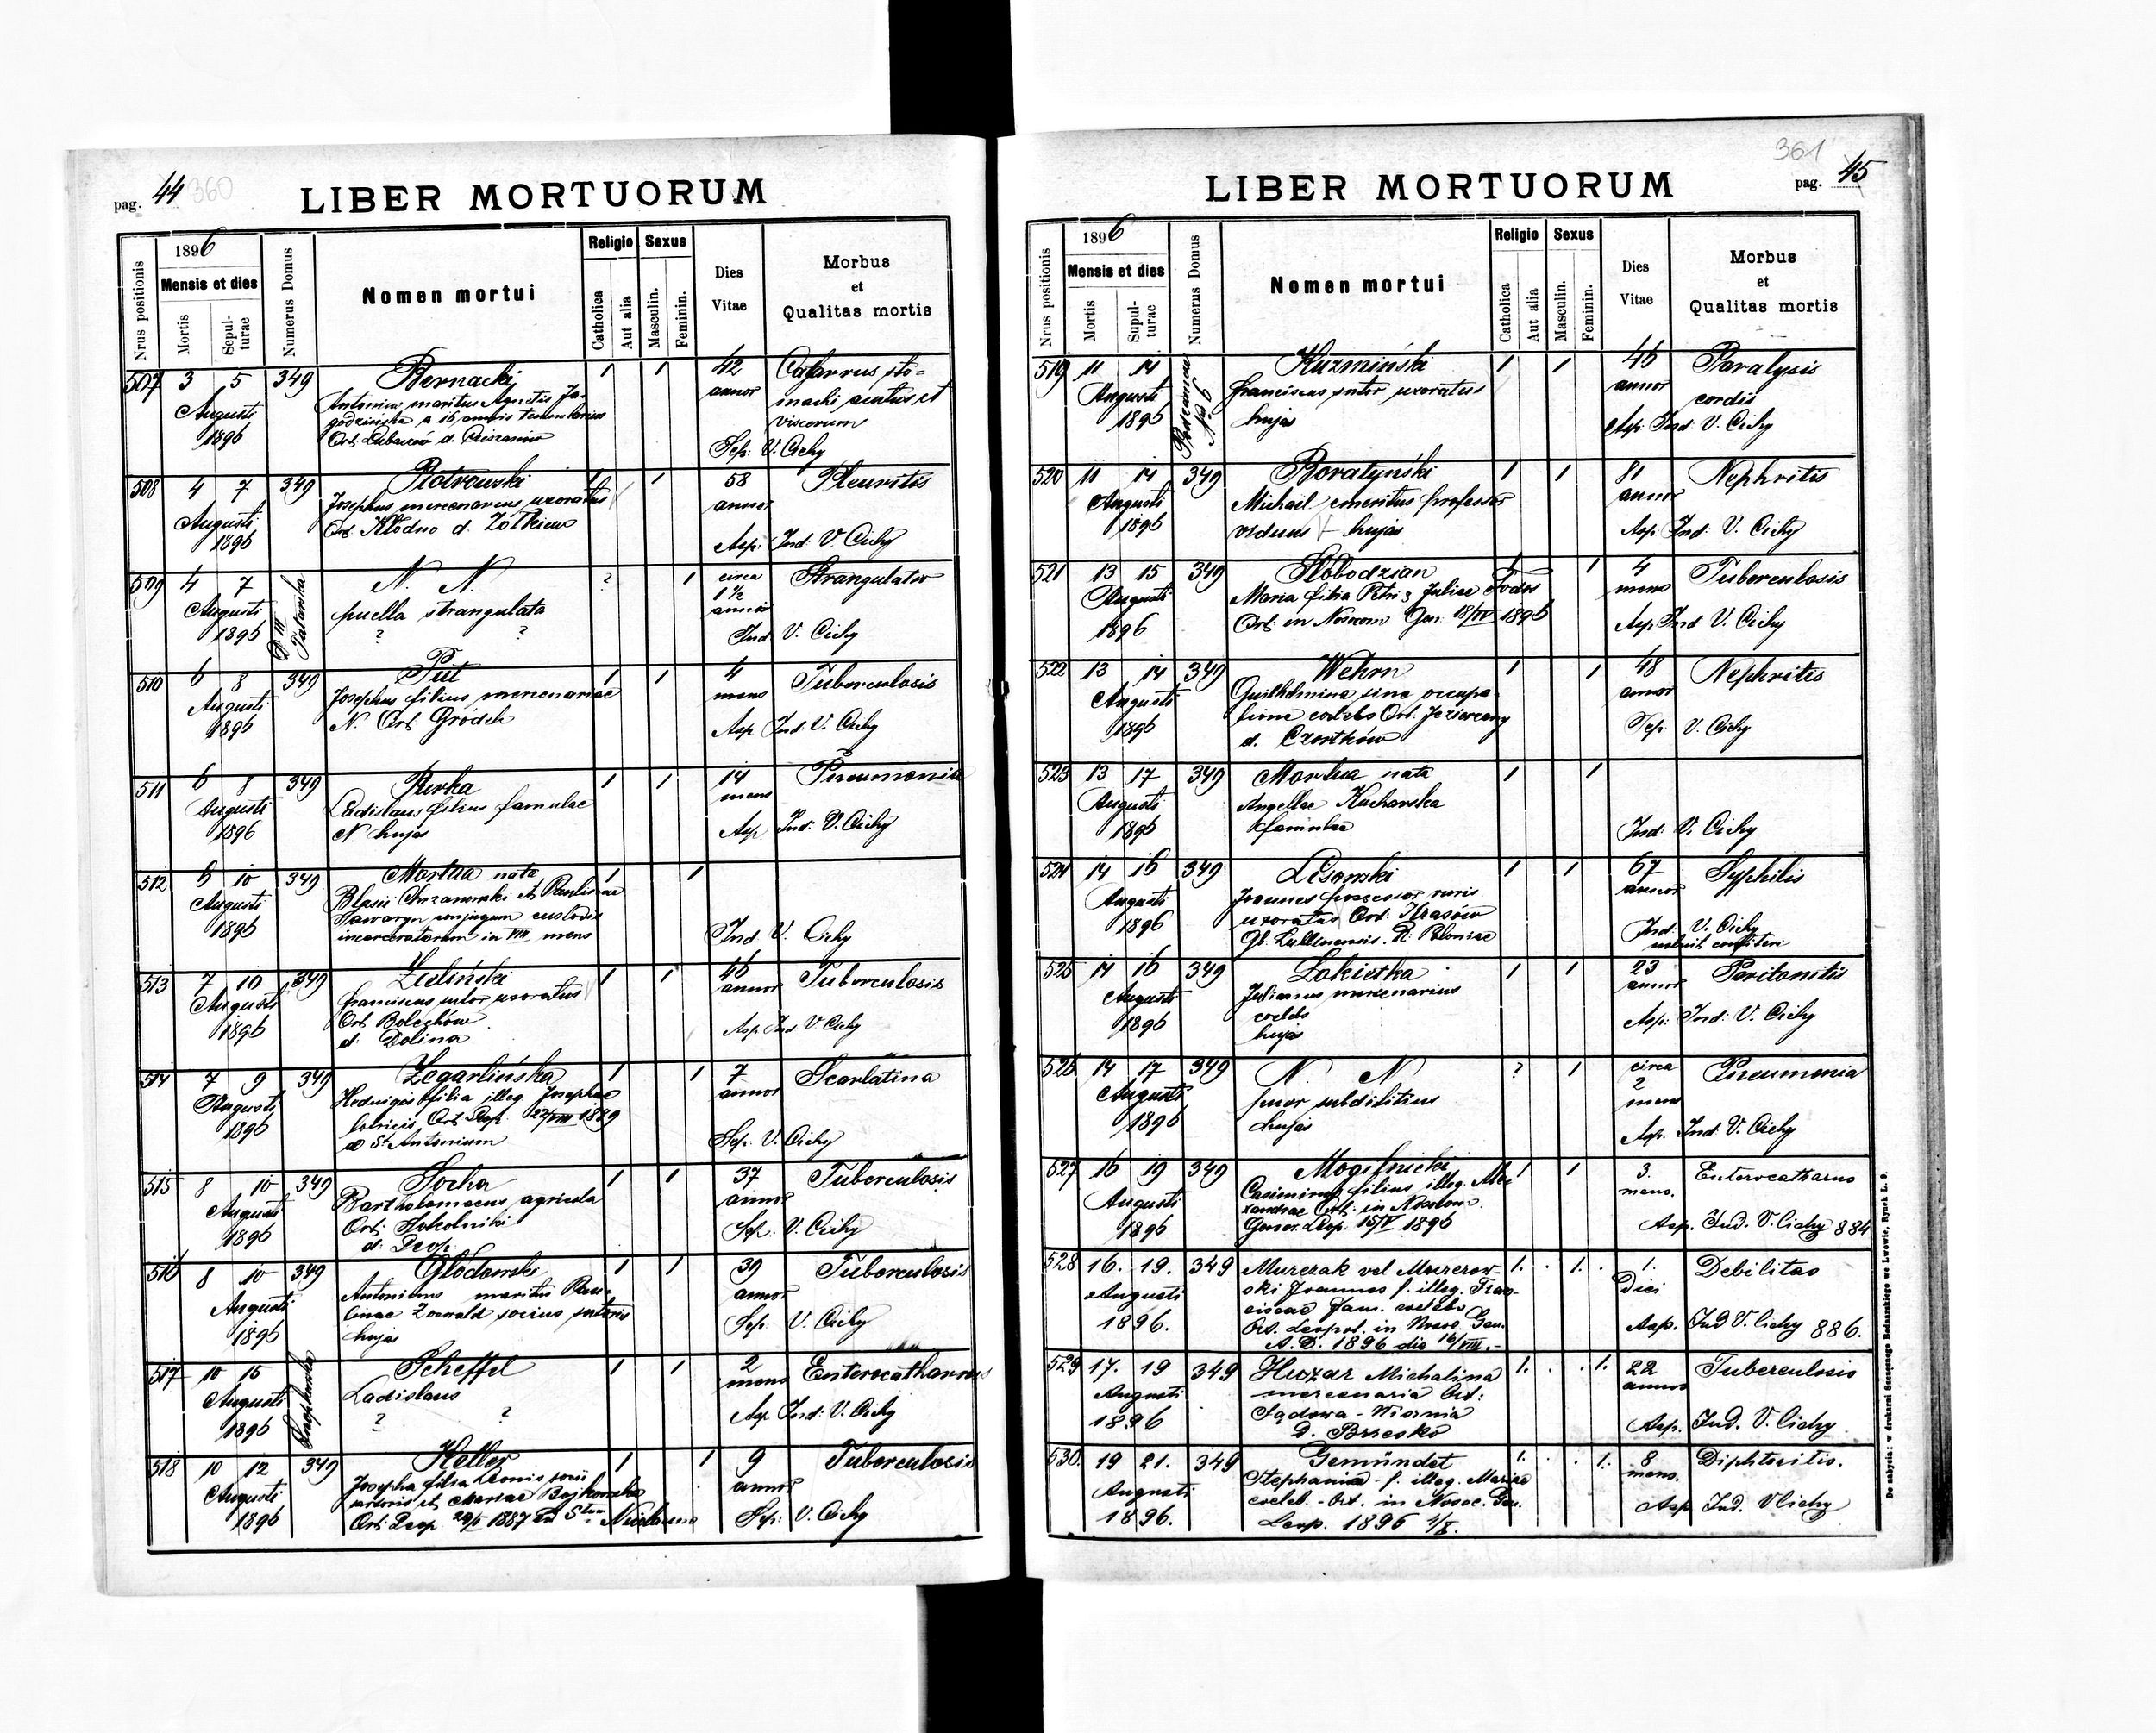 pag. 44 360
LIBER MORTUORUM
1896
Mensis et dies
Nrus positionis
Mortis
Sepul-
turae
Numerus Domus
Nomen mortui
Religio
Catholica
Aut alia
Sexus
Masculin.
Feminin.
Dies
Vitae
Morbus
et
Qualitas mortis
507 3 5 349 Bernacki 1 1 42 Catarrus sto-
Augusti Antonius maritus Agnetis annor machi acutus et
1896 a 16 annis viscerum
Ort. d. Sep: V. Cichy
508 4 7 349 Piotrowski 1 1 58 Pleuritis
Augusti Josephus mercenarius uxoratus annor
1896 Ort. Kłodno d. Żółkiew Asp: Ind: V. Cichy
509 4 7 Tatarska N. N. ? 1 circa Strangulatio
Augusti puella strangulata 1½ annor
1896 ? ? Ind V. Cichy
510 6 8 349 Put 1 1 4 Tuberculosis
Augusti Josephus filius mercenariae mens
1896 N. Ort. Gródek Asp Ind: V. Cichy
511 6 8 349 Rurka 1 1 14 Pneumonia
Augusti Ladislaus filius famulae mens
1896 N. hujas Asp. Ind: V. Cichy
512 6 10 349 Mortua nata 1 1
Augusti Blasii Chrzanowski et Paulinae
1896 conjugum custodis
incarceratorum in VIII mens Ind: V. Cichy
513 7 10 349 Zieliński 1 1 46 Tuberculosis
Augusti Franciscus sutor uxoratus annor
1896 Ort. Bolechów Asp Ind V Cichy
d. Dolina
514 7 9 349 Zegarlińska 1 1 7 Scarlatina
Augusti Hedwigis filia illeg. Josephae annor
1896 lotricis Ort. Leop. 22/VIII 1889
ad St. Antonium Sep. V. Cichy
515 8 10 349 Socha 1 1 37 Tuberculosis
Augusti Bartholomaeus agricola annor
1896 Ort: Sokolniki Sep: V. Cichy
d: Leop.
516 8 10 349 Głodowski 1 1 39 Tuberculosis
Augusti Antonius maritus Pau- annor
1896 linae socius sutoris Sep: V. Cichy
hujas
517 10 15 Scheffel 1 1 2 Enterocatharrus
Augusti Ladislaus mens
1896 ? ? Asp Ind: V. Cichy
518 10 12 349 Heller 1 1 9 Tuberculosis
Augusti Josepha filia Leonis socii annor
1896 et Mariae Bojkowska
Ort: Leop. 1887 ad Stum Nicolaum Sep: V. Cichy
361
pag. 45
LIBER MORTUORUM
1896
Mensis et dies
Nrus positionis
Mortis
Supul-
turae
Numerus Domus
Nomen mortui
Religio
Catholica
Aut alia
Sexus
Masculin.
Feminin.
Dies
Vitae
Morbus
et
Qualitas mortis
519 11 14 No 6 Kuzmiński 1 1 46 Paralysis
Augusti Franciscus sutor uxoratus annor cordis
1896 hujas Asp: Ind V. Cichy
520 11 14 349 Boratyński 1 1 81 Nephritis
Augusti Michael emeritus professor annor
1896 viduus hujas Asp Ind: V. Cichy
521 13 15 349 Słobodzian 1 1 4 Tuberculosis
Augusti Maria filia Petri & Juliae Fodor mens
1896 Ort: in Nosocom. Gen: 18/IV 1896 Asp Ind V. Cichy
522 13 14 349 Wehrn 1 1 48 Nephritis
Augusti Guilhelmina sine occupa- annor
1896 tione coelebs Ort. Jezierzany Sep: V. Cichy
d. Czortków
523 13 17 349 Mortua nata 1 1
Augusti Angellae Kucharska
1896 famulae Ind: V. Cichy
524 14 16 349 Lisowski 1 1 67 Syphilis
Augusti Joannes possessor ruris annor
1896 uxoratus Ort: Krasów Ind: V. Cichy
Gb. Lublinensis. R. Poloniae noluit confiteri
525 14 16 349 Łokietka 1 1 23 Peritonitis
Augusti Julianus mercenarius annor
1896 coelebs Asp: Ind: V. Cichy
hujas
526 14 17 349 N. N ? 1 circa Pneumonia
Augusti puer subdititius 2 mens
1896 hujas Asp. Ind: V. Cichy
527 16 19 349 Mogilnicki 1 1 3. Enterocatharus
Augusti Casimirus filius illeg. Ale- mens.
1896 xandrae Ort: in Nosocom.
Gener. Leop. 15/V 1896 Asp. Ind. V. Cichy 884
528 16. 19. 349 Murczak vel Mrozow- 1. 1. 1. Debilitas
Augusti ski Joannes f. illeg. Fran- Diei
1896. ciscae fam. coelebs
Ort. Leopol. in Nosoc. Gen. Asp. Ind V. Cichy 886.
A. D. 1896 die 16/VIII.-
529 17. 19 349 Huzar Michalina 1. 1. 22 Tuberculosis
Augusti mercenaria Ort: annor
1896 Sądowa-Wisznia Asp. Ind. V. Cichy
D. Brzesko
530. 19 21. 349 Gemündet 1. 1. 8 Diphteritis.
Augusti Stephania f. illeg. Mariae mens.
1896. coeleb.-Ort. in Nosoc. Gen.
Leop. 1896 Asp Ind. V Cichy
De nabycia: w drukarni Szczęsnego Bednarskiego we Lwowie, Rynek L. 9.